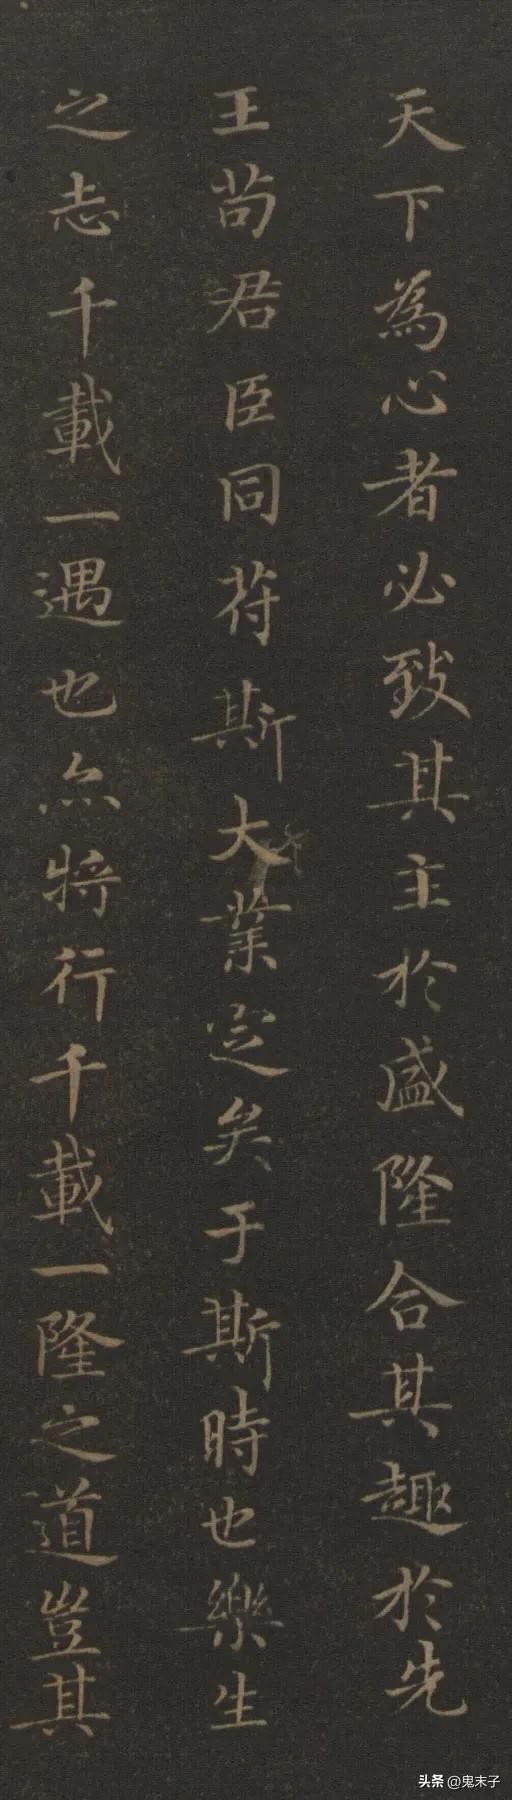 天下為心者必致其主於盛隆合其趣於先
王苟君臣同符斯大業定矣于斯時也樂生
之志千載一遇也亦將行千載一隆之道豈其
头条 @鬼末子